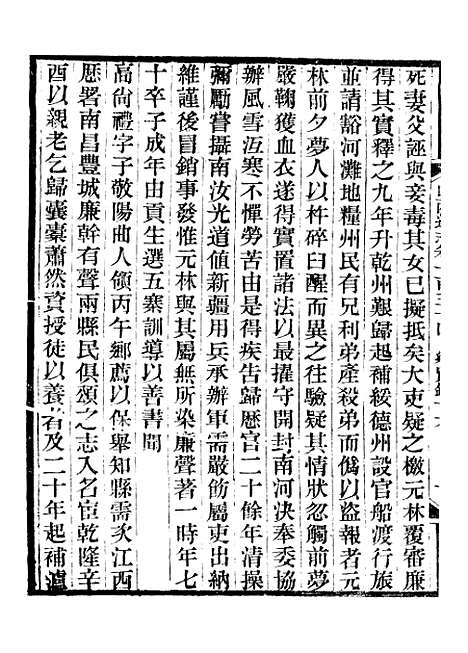 死妻父誣與妾毒其女已擬抵矣大吏疑之檄元林覆審廉
得其實釋之九年升乾州艱歸起補綏德州設官船渡行旅
並請豁河灘地糧州民有兄利弟產殺弟而僞以盜報者元
林前夕夢人以杵碎臼醒而異之往驗疑其情狀忽觸前夢
嚴鞠獲血衣遂得實置諸法以最擢守開封南河決奉委協
辦風雪沍寒不憚勞苦由是得疾告歸歷官二十餘年清操
彌勵嘗攝南汝光道値新疆用兵承辦軍需嚴飭屬吏出納
維謹後冒銷事發惟元林與其屬無所染廉聲著一時年七
十卒子成年由貢生選五寨訓導以善書聞
高尙禮字子敬陽曲人領丙午鄉薦以保舉知縣需次江西
歷署南昌豐城廉幹有聲兩縣民俱頌之志入名宦乾隆辛
酉以親老乞歸囊橐蕭然資授徒以養者及二十年起補瀘